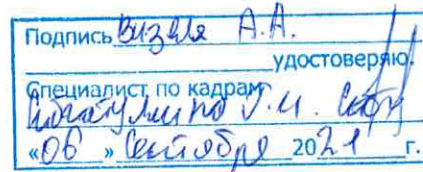 Подпись Визеля А.А.
удостоверяю.
Специалист по кадрам
Г.И.
«06» Сентября 2021 г.